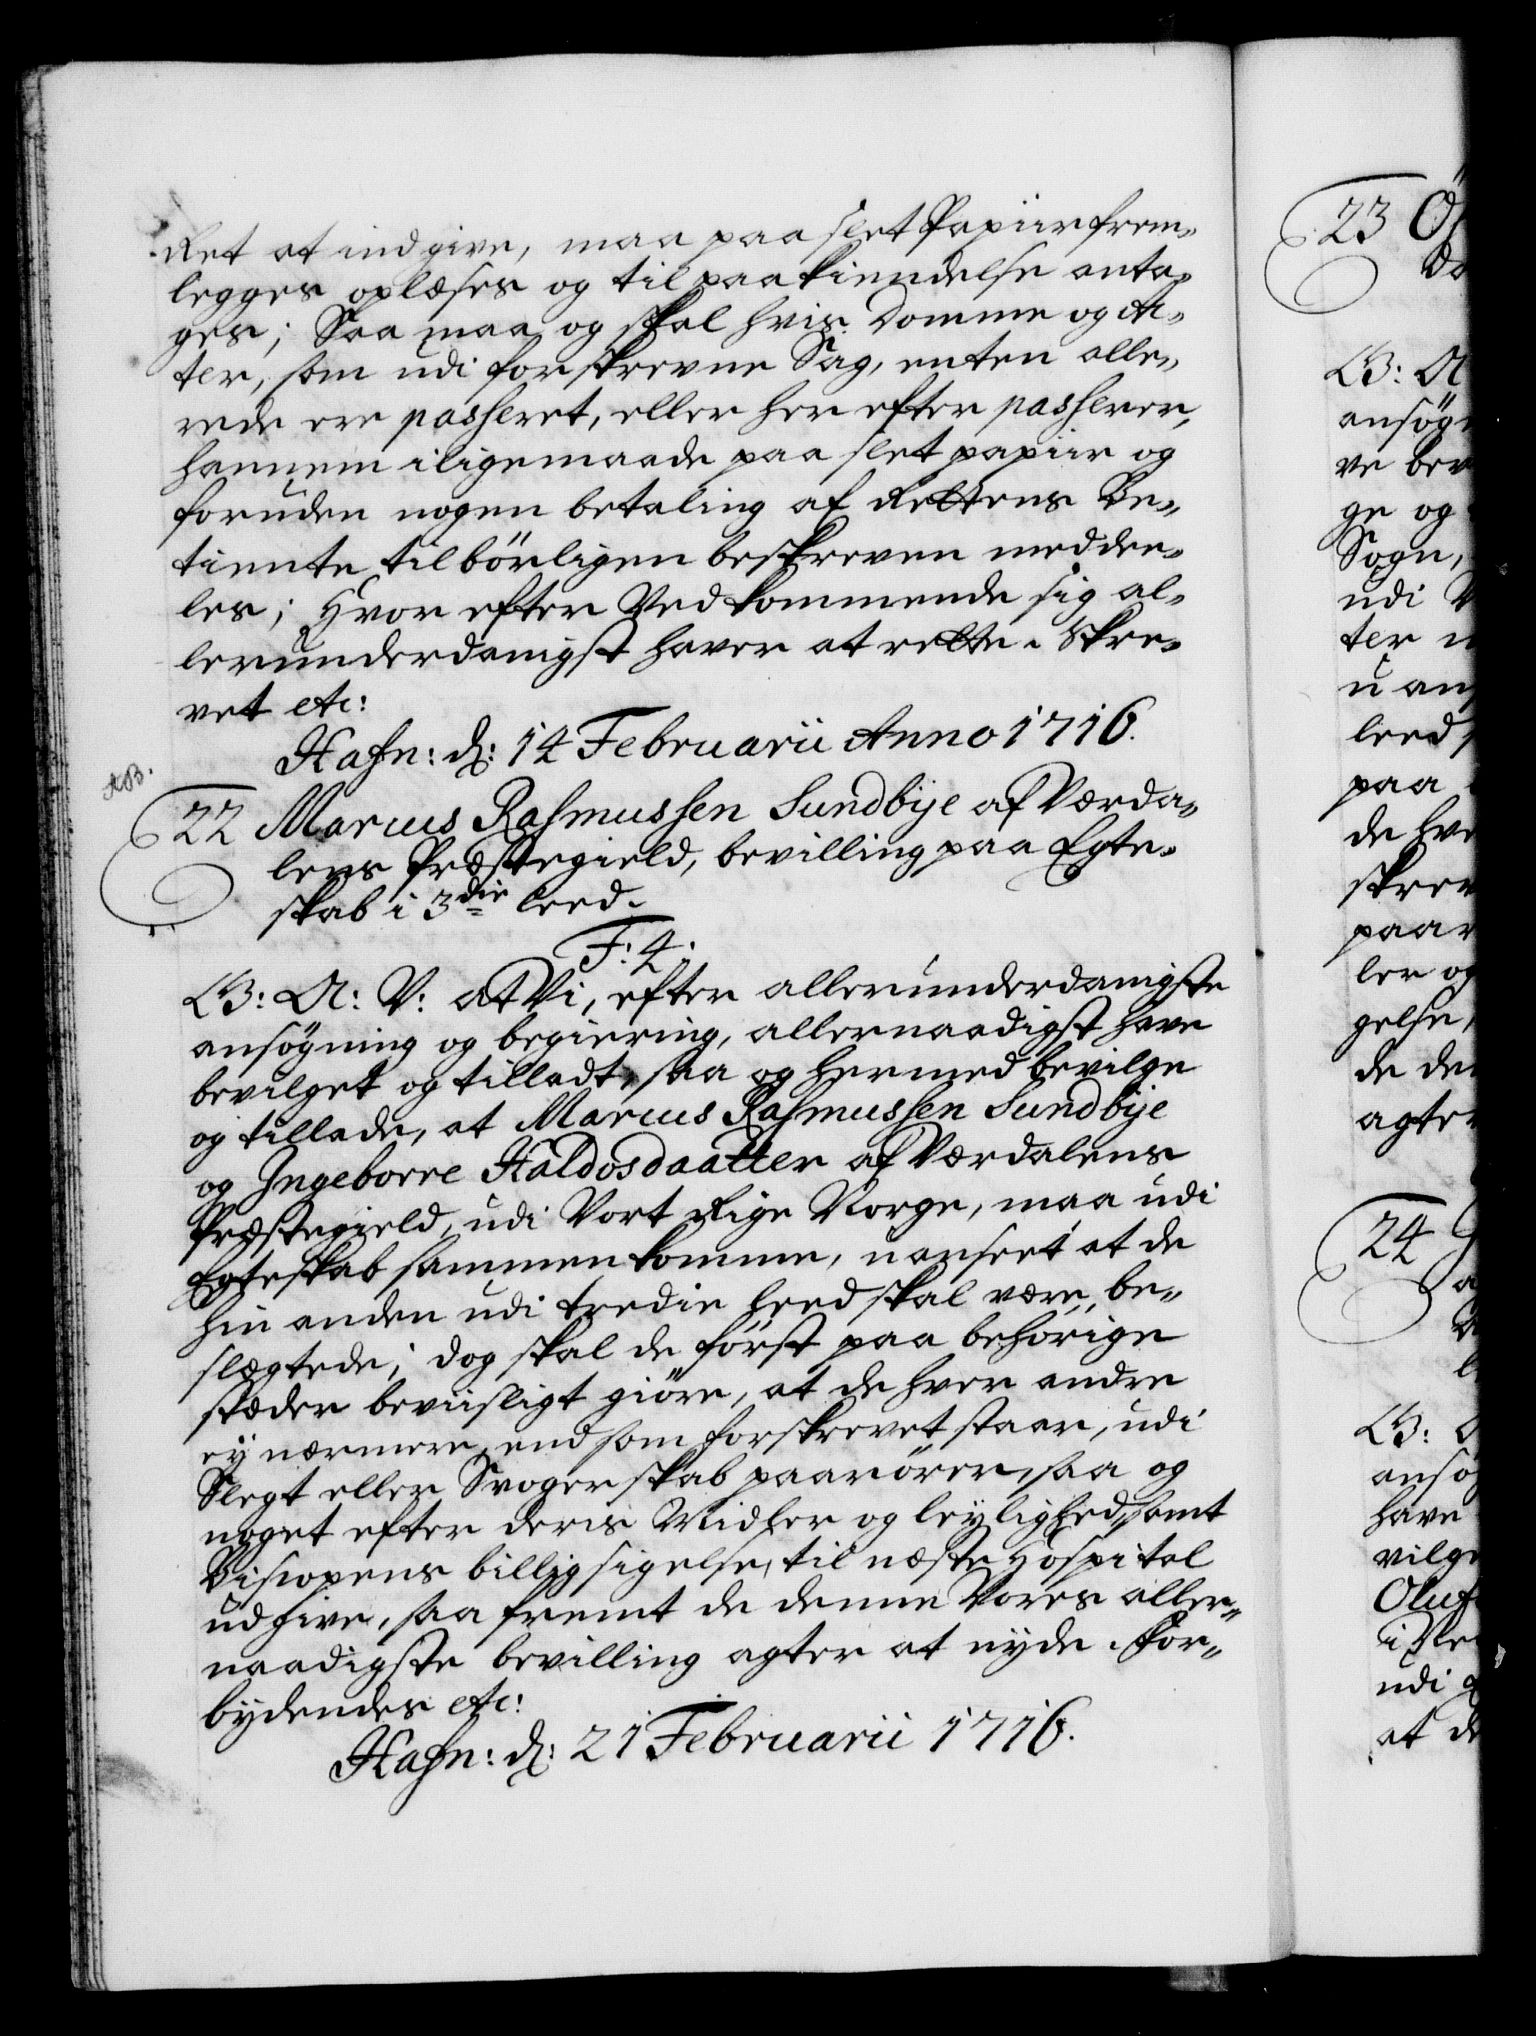 Ret at indgive, maa paa slet Papiir frem-
legges oplæses og til paakiendelse anta-
ges; Saa maa og skal hvis Domme og Ac-
ter, som udi forskrevne Sag, enten alle-
rede ere passeret, eller her efter passerer,
hannem iligemaade paa slet papiir og
foruden nogen betaling af Rettens Be-
tiente tilbörligen beskreven meddee-
les; Hvor efter Vedkommende sig al-
lerunderdanigst haver at rette. Skre-
vet etc:
Hafn: d: 14 Februarii Anno 1716.
NB.
22 Marcus Rasmussen Sundbye af Værda-
lens Præstegield, bevilling paa Egte-
skab i 3die leed.
F: 4.
G: A: V: at Vi, efter allerunderdanigste
ansögning og begiering, allernaadigst have
bevilget og tilladt, saa og hermed bevilge
og tillade, at Marcus Rasmussen Sundbye
og Ingeborre Haldosdaatter af Værdalens
Præstegield, udi Vort Rige Norge, maa udi
Egteskab sammenkomme, uanseet at de
hin anden udi tredie leed skal være be-
slægtede; dog skal de först paa behörige
stæder beviisligt giöre, at de hver andre
ey nærmere, end som forskrevet staar, udi
Slegt eller Svogerskab paarörer, saa og
noget efter deris Midler og leylighed, samt
Biscopens billig sigelse, til næste Hospital
udgive, saa fremt de denne Vores aller-
naadigste bevilling agter at nyde. For-
bydendes etc:
Hafn: d: 21 Februarii 1716.
23
G: A
ansög
ve bev
ge og
Sogn,
udi V
ter
uan
leed
paa
de hve
skrev
paar
ler og
gelse,
de den
agter
24
G:
ansö
have
vilge
Oluf
udi
at de